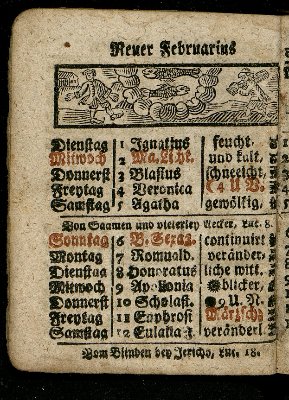 Neuer Februarius
Dienstag 1 Ignatius feucht,
Mitwoch 2 Ma. Licht. und kalt,
Donnerst 3 Blasius schneelcht,
Freytag 4 Veronica (4 U V.
Samstag 5 Agatha gewölkig,
Von Saamen und vielerley Aecker, Luc. 8.
Sonntag 6 B. Sexag. continuirt
Montag 7 Romuald. veränder,
Dienstag 8 Honoratus liche witt.
Mitwoch 9 Apolonia blicker,
Donnerst 10 Scholast. 9 U. N.
Freytag 11 Euphrosi Märzsch.
Samstag 12 Eulalia veränderl
Vom Blinden bey Jericho, Luc. 18.